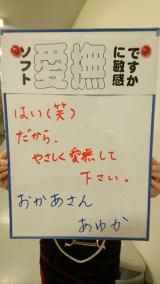 ソフト
愛撫
に敏感
ですか
はい(笑)
だから、
やさしく愛撫して
下さい。
おかあさん
あゆか